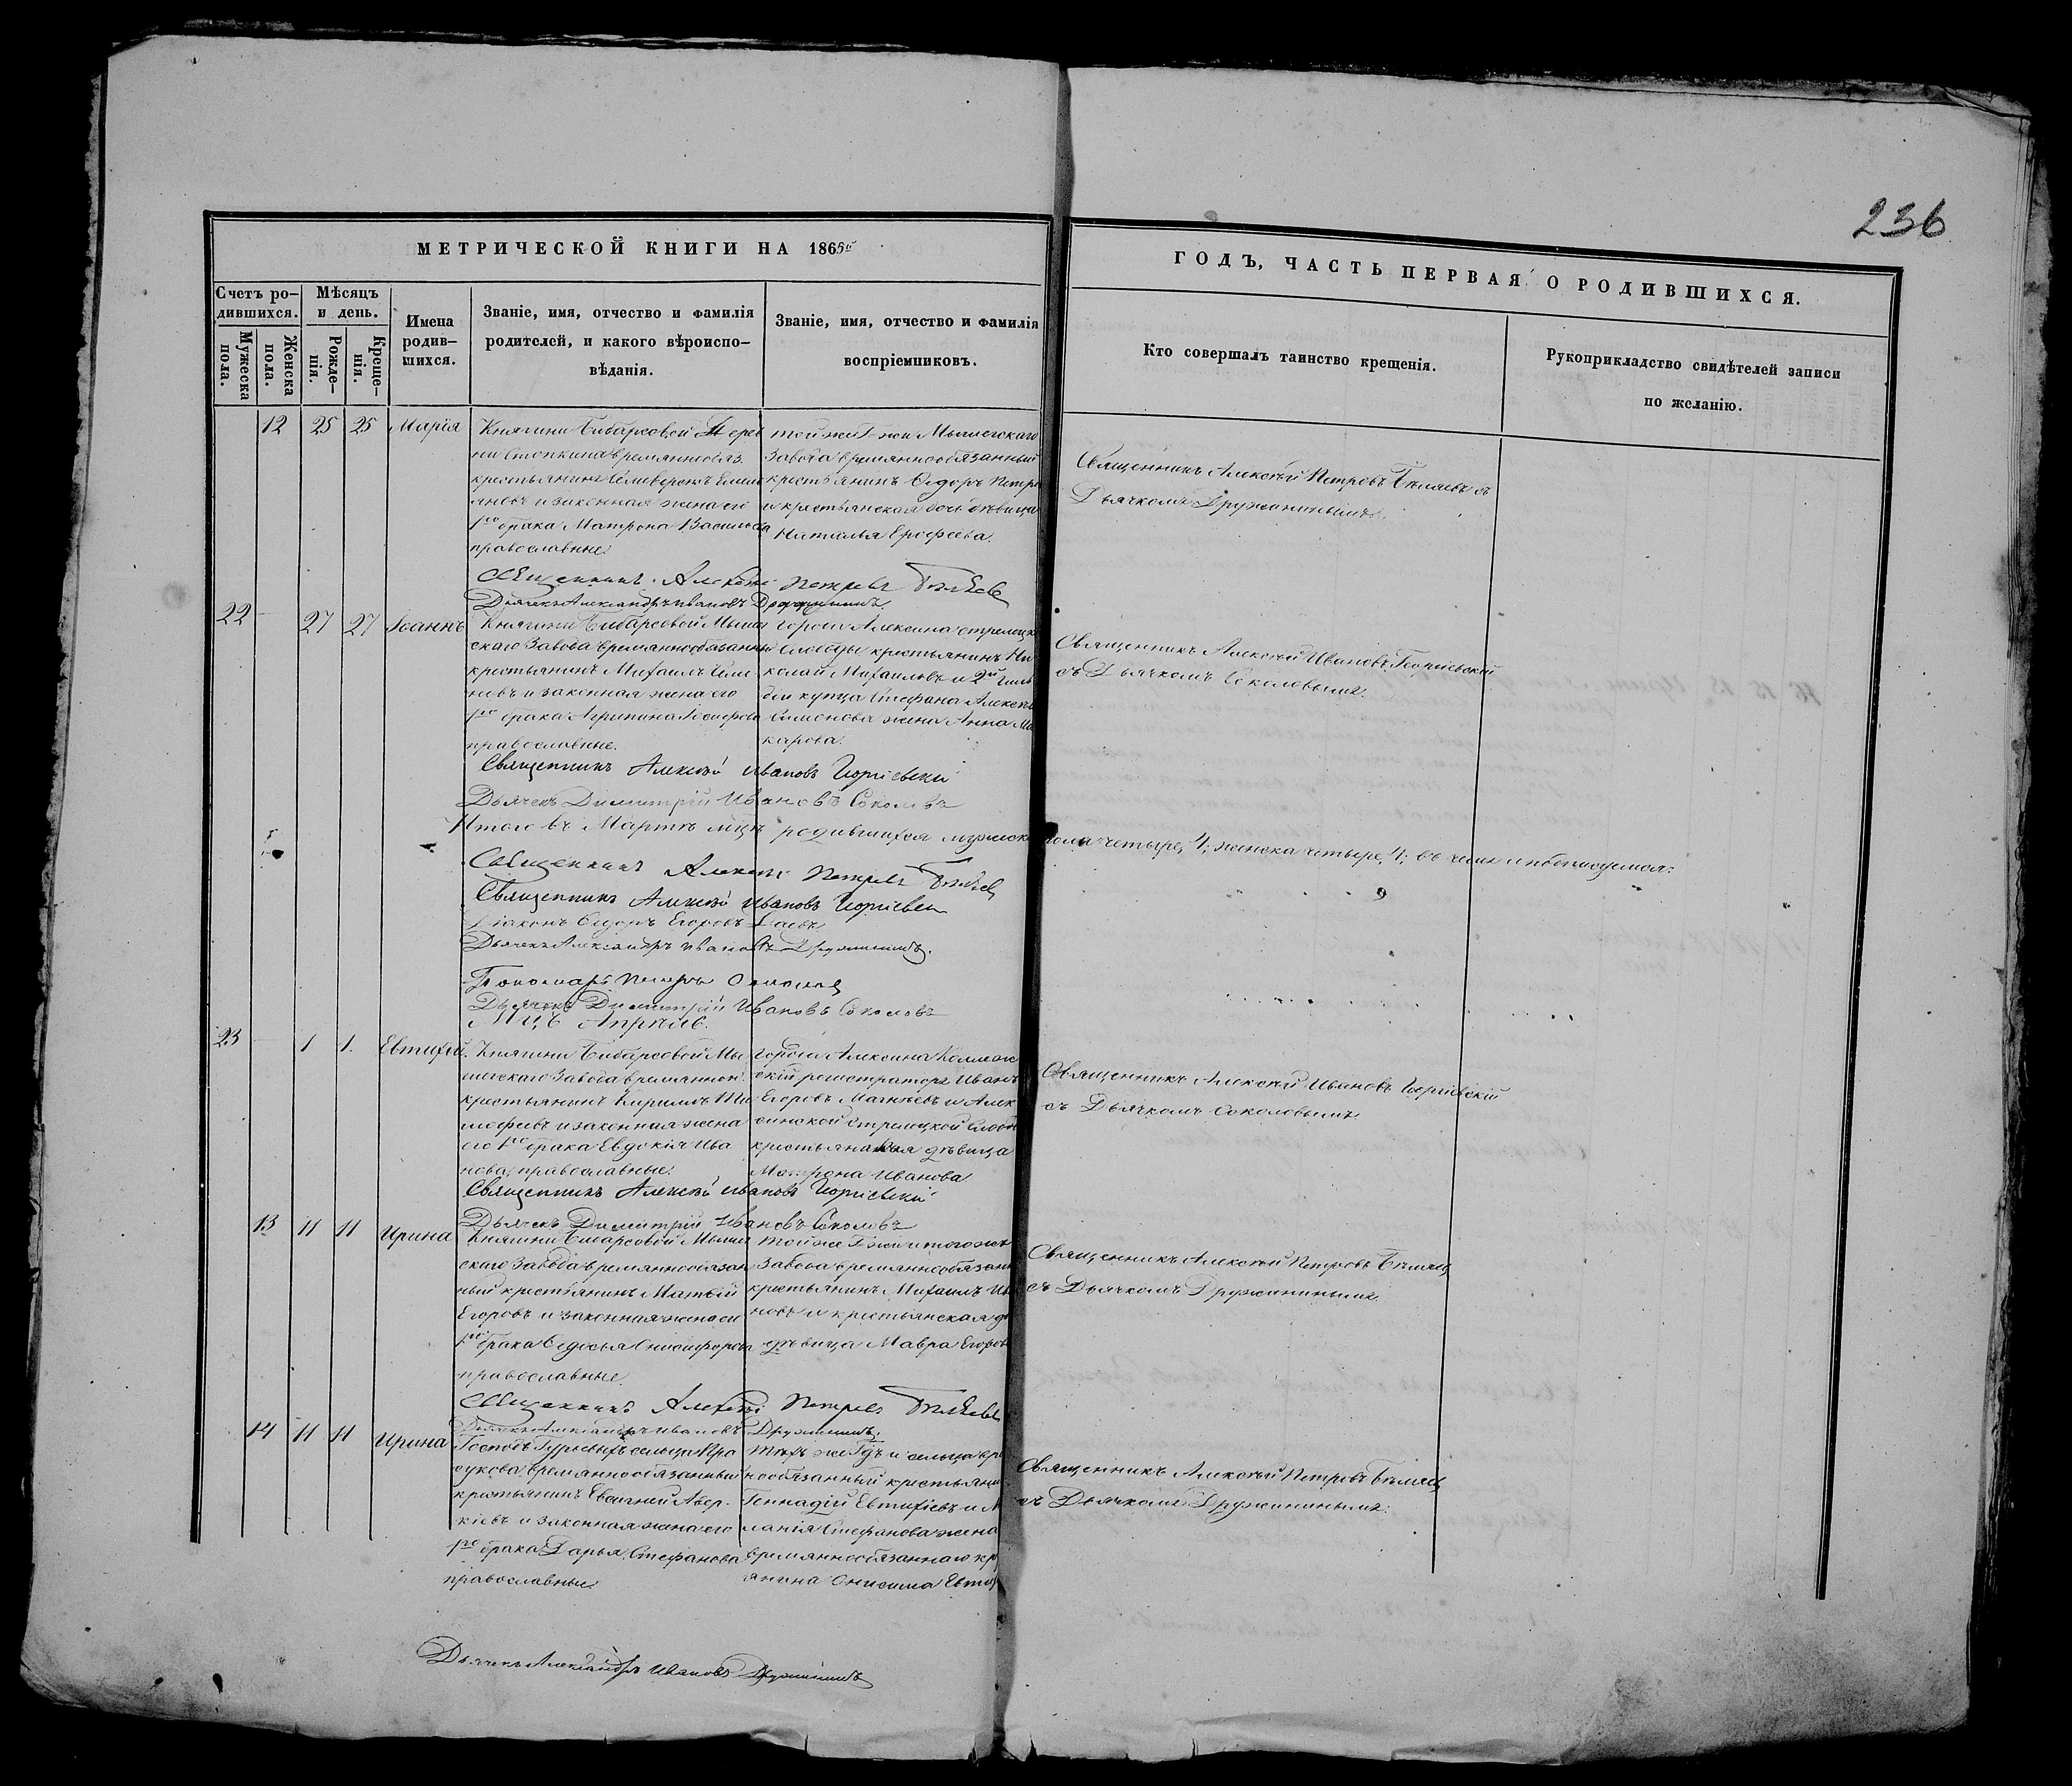 236
МЕТРИЧЕСКОЙ КНИГИ НА 1865й
ГОДЪ, ЧАСТЬ ПЕРВАЯ О РОДИВШИХСЯ.
Счетъ родившихся.
Мужеска пола.
Женска пола.
Мѣсяцъ и день.
Рожденія.
Крещенія.
Имена родившихся.
Званіе, имя, отчество и фамилія
родителей, и какого вѣроиспо-
вѣданія.
Званіе, имя, отчество и фамилія
воспріемниковъ.
Кто совершалъ таинство крещенія.
Рукоприкладство свидѣтелей записи
по желанію.
12 25 25 Марія
Княгини Бибарсовой Дерев
ни временнообяз.
крестьянинъ Селиверстъ Емель
яновъ и законная жена его
1го брака Матрона Васильева
православные.
той же Г-жи Мышегскаго
Завода временнообязанный
крестьянинъ Ѳедоръ Петро
и крестьянская дочь дѣвица
Наталья Ерофеева.
Священникъ Алексѣй Петровъ Бѣляевъ съ
Дьячкомъ Дружининымъ.
Священникъ Алексѣй Петровъ Бѣляевъ
Дьячекъ Александръ Ивановъ Дружининъ.
22 27 27 Іоаннъ
Княгини Бибарсовой Мышег
скаго Завода временнообязанный
крестьянинъ Михаилъ Семе
новъ и законная жена его
1го брака Агрипина
православные.
города Алексина стрелецк
слободы крестьянинъ Ни
колай Михаиловъ и 2й гиль
діи купца Стефана Алексѣев
Симонова жена Анна Ма
карова.
Священникъ Алексѣй Ивановъ Георгіевскій
съ Дьячкомъ Соколовымъ.
Священникъ Алексѣй Ивановъ Георгіевскій
Дьячекъ Димитрій Ивановъ Соколовъ
Итого въ Мартѣ мцѣ родившихся мужеска пола четыре, 4; женска четыре, 4; въ чемъ и подписуемся:
Священникъ Алексѣй Петровъ Бѣляевъ
Священникъ Алексѣй Ивановъ Георгіевскій
Діаконъ Ѳедоръ Егоровъ
Дьячекъ Александръ Ивановъ Дружининъ.
Пономарь Петръ
Дьячекъ Димитрій Ивановъ Соколовъ
Мцъ Апрѣль.
23 1 1. Евтихій.
Княгини Бибарсовой Мы
шегскаго Завода временноо
крестьянинъ Кирилъ Ти
мофеевъ и законная жена
его 1го брака Евдокія Ива
нова, православные.
города Алексина Коллеж
скій регистраторъ Иванъ
Егоровъ и Алек
синской Стрелецкой Слобо
крестьянская дѣвица
Матрона Иванова
Священникъ Алексѣй Ивановъ Георгіевскій
съ Дьячкомъ Соколовымъ
Священникъ Алексѣй Ивановъ Георгіевскій
Дьячекъ Димитрій Ивановъ Соколовъ
13 11 11 Ирина
Княгини Бибарсовой Мышег
скаго Завода временнообязан
ный крестьянинъ Матвѣй
Егоровъ и законная жена его
1го брака Ѳедосья Онисифорова
православные.
той же Г-жи и того же
Завода временнообязанн
крестьянинъ Михаилъ Ива
новъ и крестьянская до
дѣвица Мавра Егоров
Священникъ Алексѣй Петровъ Бѣляев
съ Дьячкомъ Дружининымъ.
Священникъ Алексѣй Петровъ Бѣляевъ
Дьячекъ Александръ Ивановъ Дружининъ.
14 11 11 Ирина
Господъ Гурьевыхъ сельца Про
скукова временнообязанный
крестьянинъ Евсигней Авер
кіевъ и законная жена его
1го брака Дарья Стефанова
православные.
тѣхъ же Гдъ и сельца вре
нообязанный крестьяни
Геннадій Евтихіевъ и М
ланія Стефанова жена
временнообязаннаго кр
янина Онисима Евтих
Священникъ Алексѣй Петровъ Бѣляев
съ Дьячкомъ Дружининымъ.
Дьячекъ Александръ Ивановъ Дружининъ